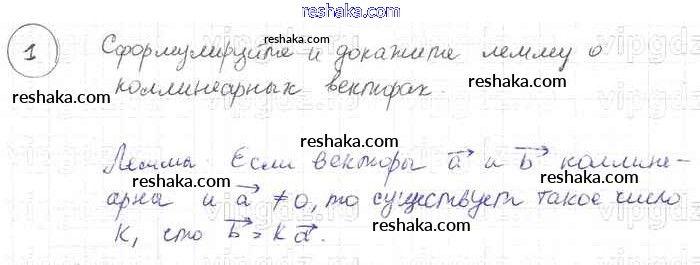 reshaka.com
1 Сформулируйте и докажите лемму о
reshaka.com
коллинеарных векторах.
reshaka.com
reshaka.com
reshaka.com
Лемма. Если векторы a и b коллине-
reshaka.com
арна и a ≠ 0, то существует такое число
k, что b = k a.
reshaka.com
reshaka.com